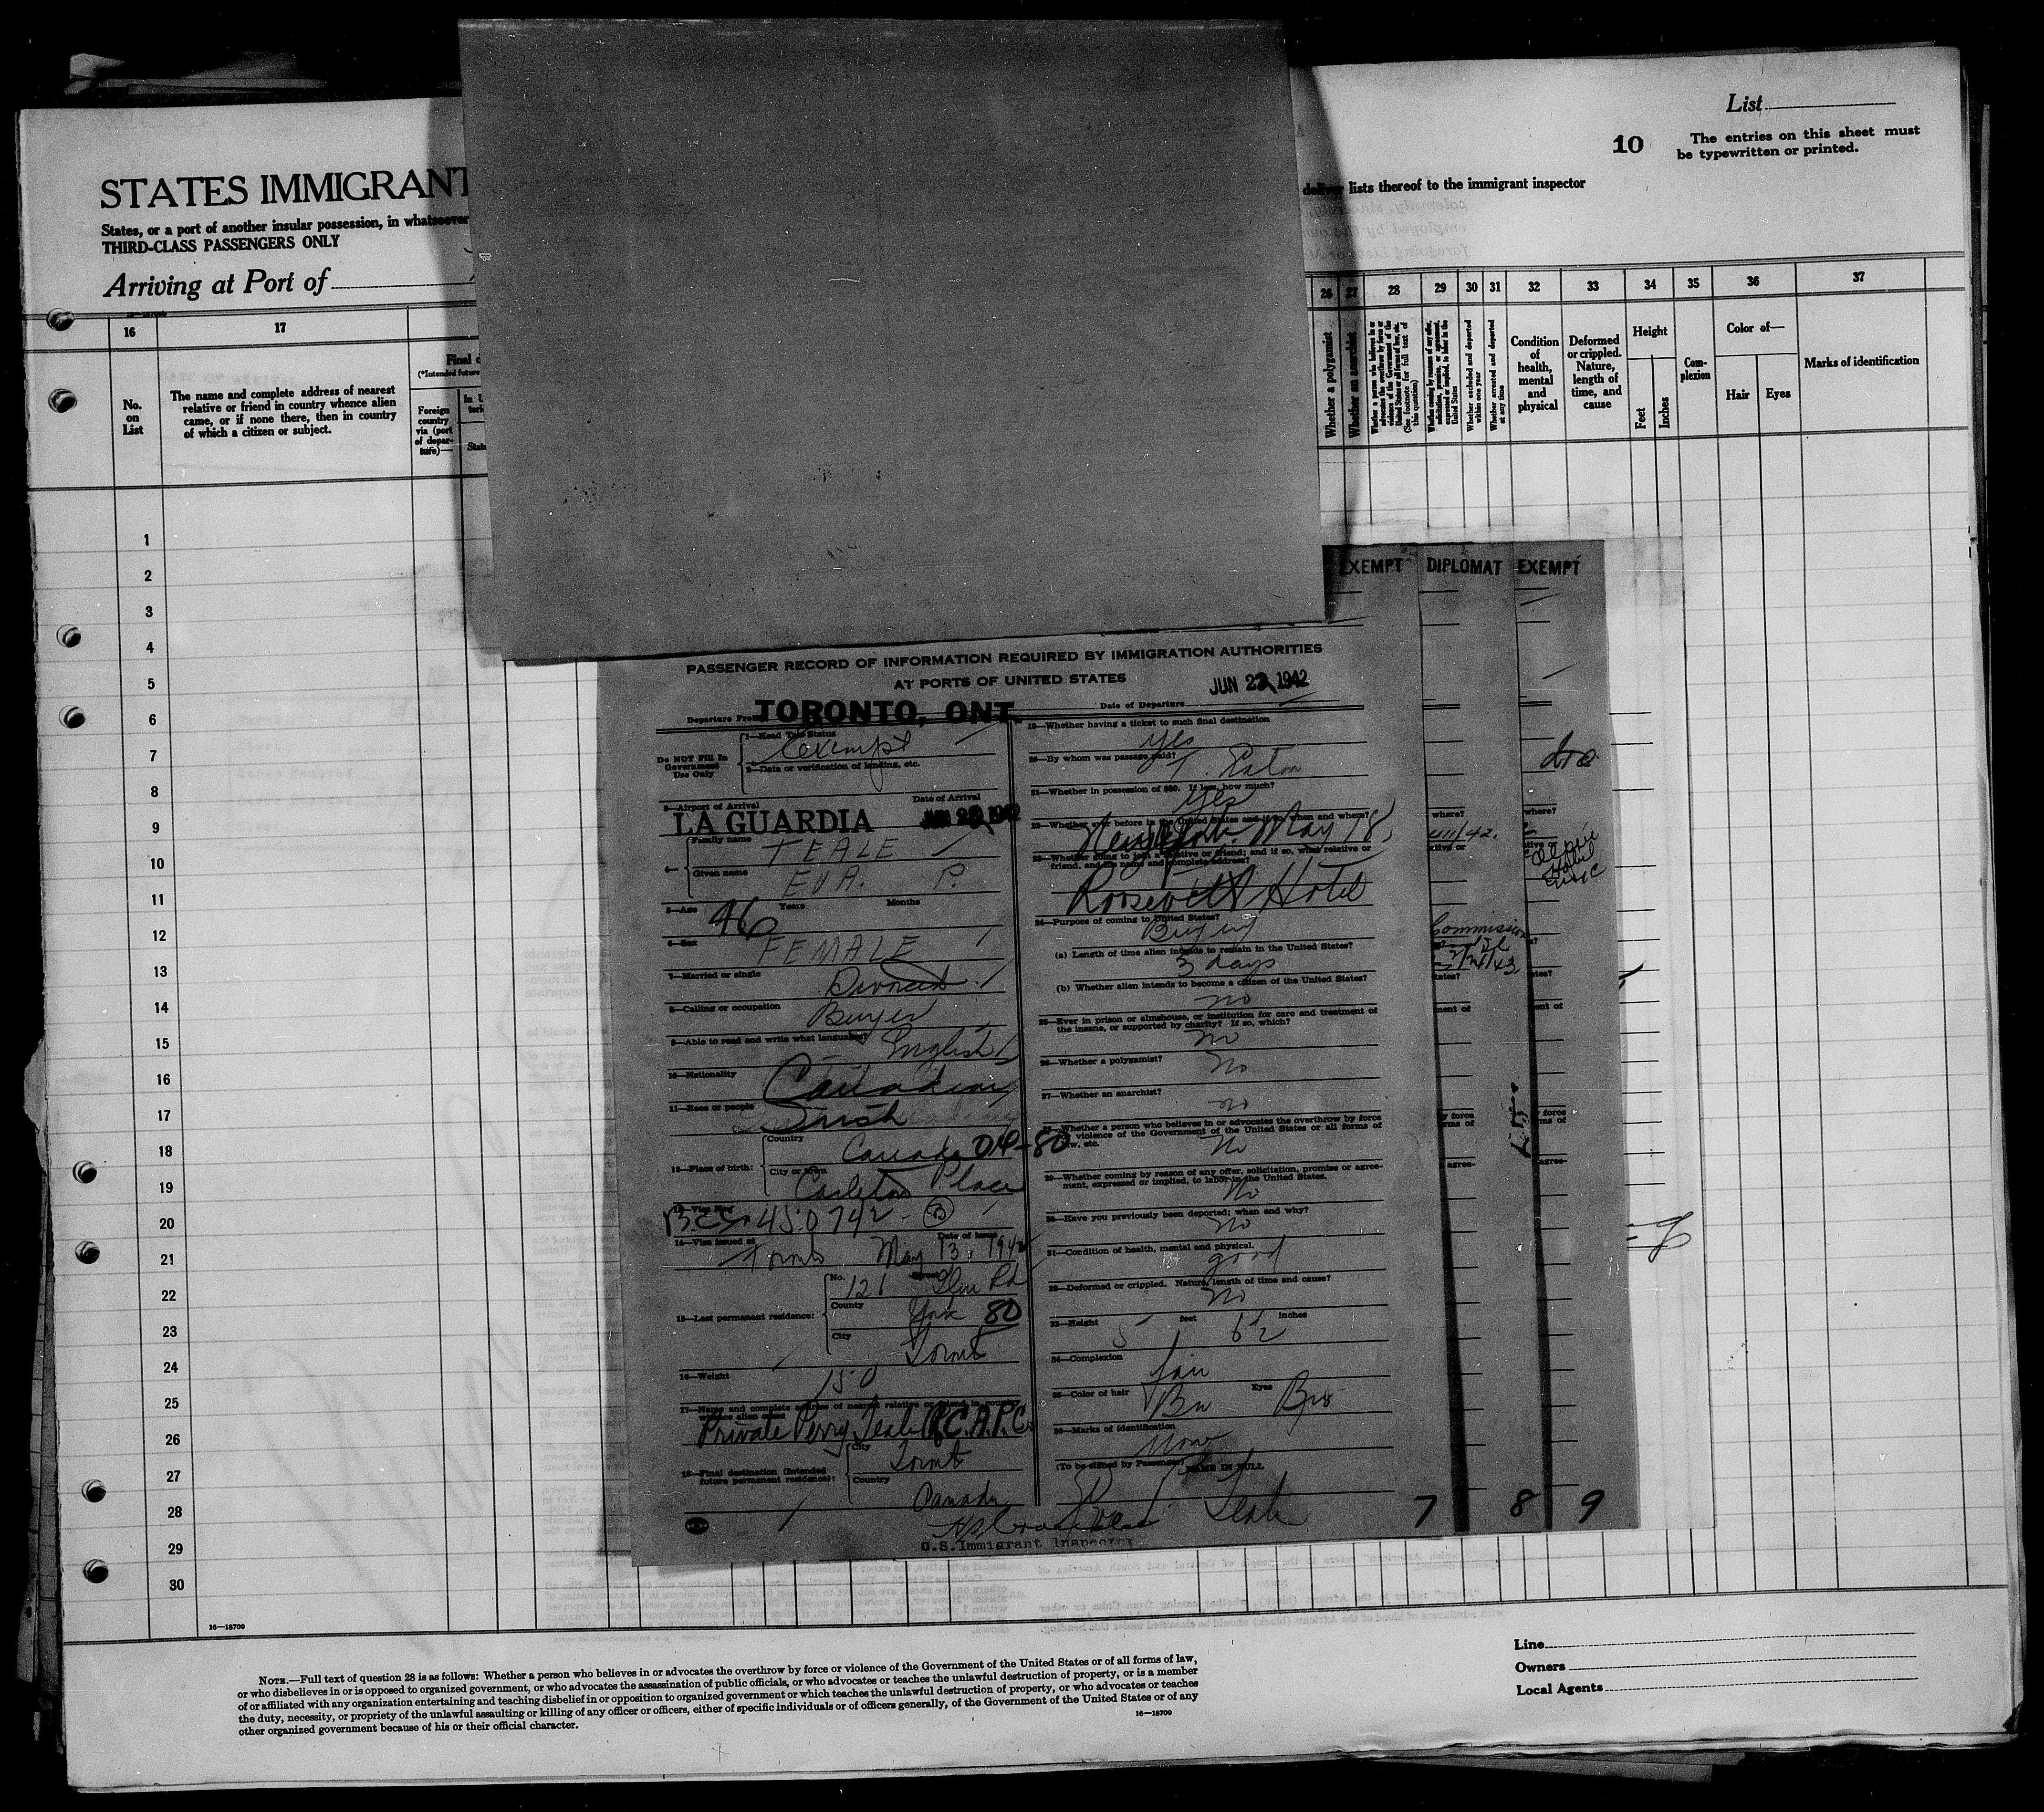 List
10
The entries on this sheet must
be typewritten or printed.
STATES IMMIGRANT
deliver lists thereof to the immigrant inspector
States, or a port of another insular possession, in whatsoever
THIRD-CLASS PASSENGERS ONLY
Arriving at Port of
16 17 26 27 28 29 30 31 32 33 34 35 36 37
No.
on
List
The name and complete address of nearest
relative or friend in country whence alien
came, or if none there, then in country
of which a citizen or subject.
Final
(*Intended future
Foreign
country
via (port
of depar-
ture)—
Whether a polygamist
Whether an anarchist
Whether a person who believes in or
advocates the overthrow by force or
violence of the Government of the
United States or all forms of law, etc.
(See footnote for full text of
this question)
Whether coming by reason of any offer,
solicitation, promise, or agreement,
expressed or implied, to labor in the
United States
Whether excluded and deported
within one year
Whether arrested and deported
at any time
Condition
of
health,
mental
and
physical
Deformed
or crippled.
Nature,
length of
time, and
cause
Height
Feet
Inches
Com-
plexion
Color of—
Hair
Eyes
Marks of identification
1
2
3
4
5
6
7
8
9
10
11
12
13
14
15
16
17
18
19
20
21
22
23
24
25
26
27
28
29
30
EXEMPT DIPLOMAT EXEMPT
PASSENGER RECORD OF INFORMATION REQUIRED BY IMMIGRATION AUTHORITIES
AT PORTS OF UNITED STATES
JUN 22 1942
Departure From TORONTO, ONT.
Date of Departure
Do NOT Fill In
Government
Use Only
1—Head Tax Status
exempt
2—Data or verification of landing, etc.
3—Airport of Arrival
Date of Arrival
LA GUARDIA
JUN 22 1942
4—
Family name
TEALE
Given name
EVA. P.
5—Age 46 Years Months
6—Sex FEMALE
7—Married or single Divorced
8—Calling or occupation Buyer
9—Able to read and write what language? English
10—Nationality Canadian
11—Race or people Irish
12—Place of birth:
Country
Canada 04-80
City or town
Carleton Place
13—Visa No.
B.C.S. 450742 - B
14—Visa issued at Date of issue
Toronto May 13, 1942
15—Last permanent residence:
No. 121 Street Glen Rd
County York 80
City Toronto
16—Weight 150
17—Name and complete address of nearest relative or friend in country
whence alien came
Private Perry Teale R.C.A.P.C.
18—Final destination (Intended
future permanent residence):
City Toronto
Country Canada
19—Whether having a ticket to such final destination
yes
20—By whom was passage paid?
T. Eaton
21—Whether in possession of $50. If less, how much?
yes
22—Whether ever before in the United States and if so, when and where?
New York May 18,
23—Whether going to join a relative or friend; and if so, what relative or
friend, and his name and complete address?
Roosevelt Hotel
24—Purpose of coming to United States?
Buying
(a) Length of time alien intends to remain in the United States?
3 days
(b) Whether alien intends to become a citizen of the United States?
no
25—Ever in prison or almshouse, or institution for care and treatment of
the insane, or supported by charity? If so, which?
no
26—Whether a polygamist?
no
27—Whether an anarchist?
no
Whether a person who believes in or advocates the overthrow by force
violence of the Government of the United States or all forms of
law, etc.
no
29—Whether coming by reason of any offer, solicitation, promise or agree-
ment, expressed or implied, to labor in the United States.
no
30—Have you previously been deported; when and why?
no
31—Condition of health, mental and physical.
good
32—Deformed or crippled. Nature, length of time and cause?
no
33—Height 5 feet 6½ inches
34—Complexion
fair
35—Color of hair Bn Eyes Bro
36—Marks of identification
None
(To be signed by Passenger) NAME IN FULL
Teale
U.S. Immigrant Inspector
where?
Commission
7 8 9
16—18709
NOTE.—Full text of question 28 is as follows: Whether a person who believes in or advocates the overthrow by force or violence of the Government of the United States or of all forms of law,
or who disbelieves in or is opposed to organized government, or who advocates the assassination of public officials, or who advocates or teaches the unlawful destruction of property, or is a member
of or affiliated with any organization entertaining and teaching disbelief in or opposition to organized government or which teaches the unlawful destruction of property, or who advocates or teaches
the duty, necessity, or propriety of the unlawful assaulting or killing of any officer or officers, either of specific individuals or of officers generally, of the Government of the United States or of any
other organized government because of his or their official character.
16—18709
Line
Owners
Local Agents